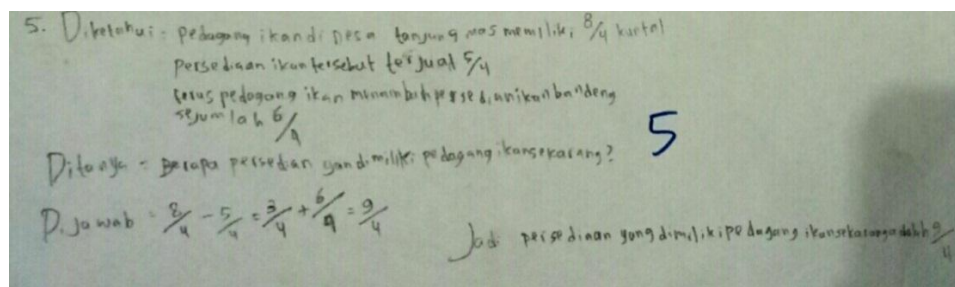 5. Diketahui : pedagang ikan di Desa tanjung mas memiliki 8/4 kuntal
persediaan ikan tersebut terjual 5/4
terus pedagang ikan menambah persedianikan bandeng
sejumlah 6/4
5
Ditanya = Berapa persedian yandimiliki pedagang ikansekarang?
Dijawab = 8/4 - 5/4 = 3/4 + 6/4 = 9/4
Jadi persediaan yang dimiliki pedagang ikansekarang adalah 9/4